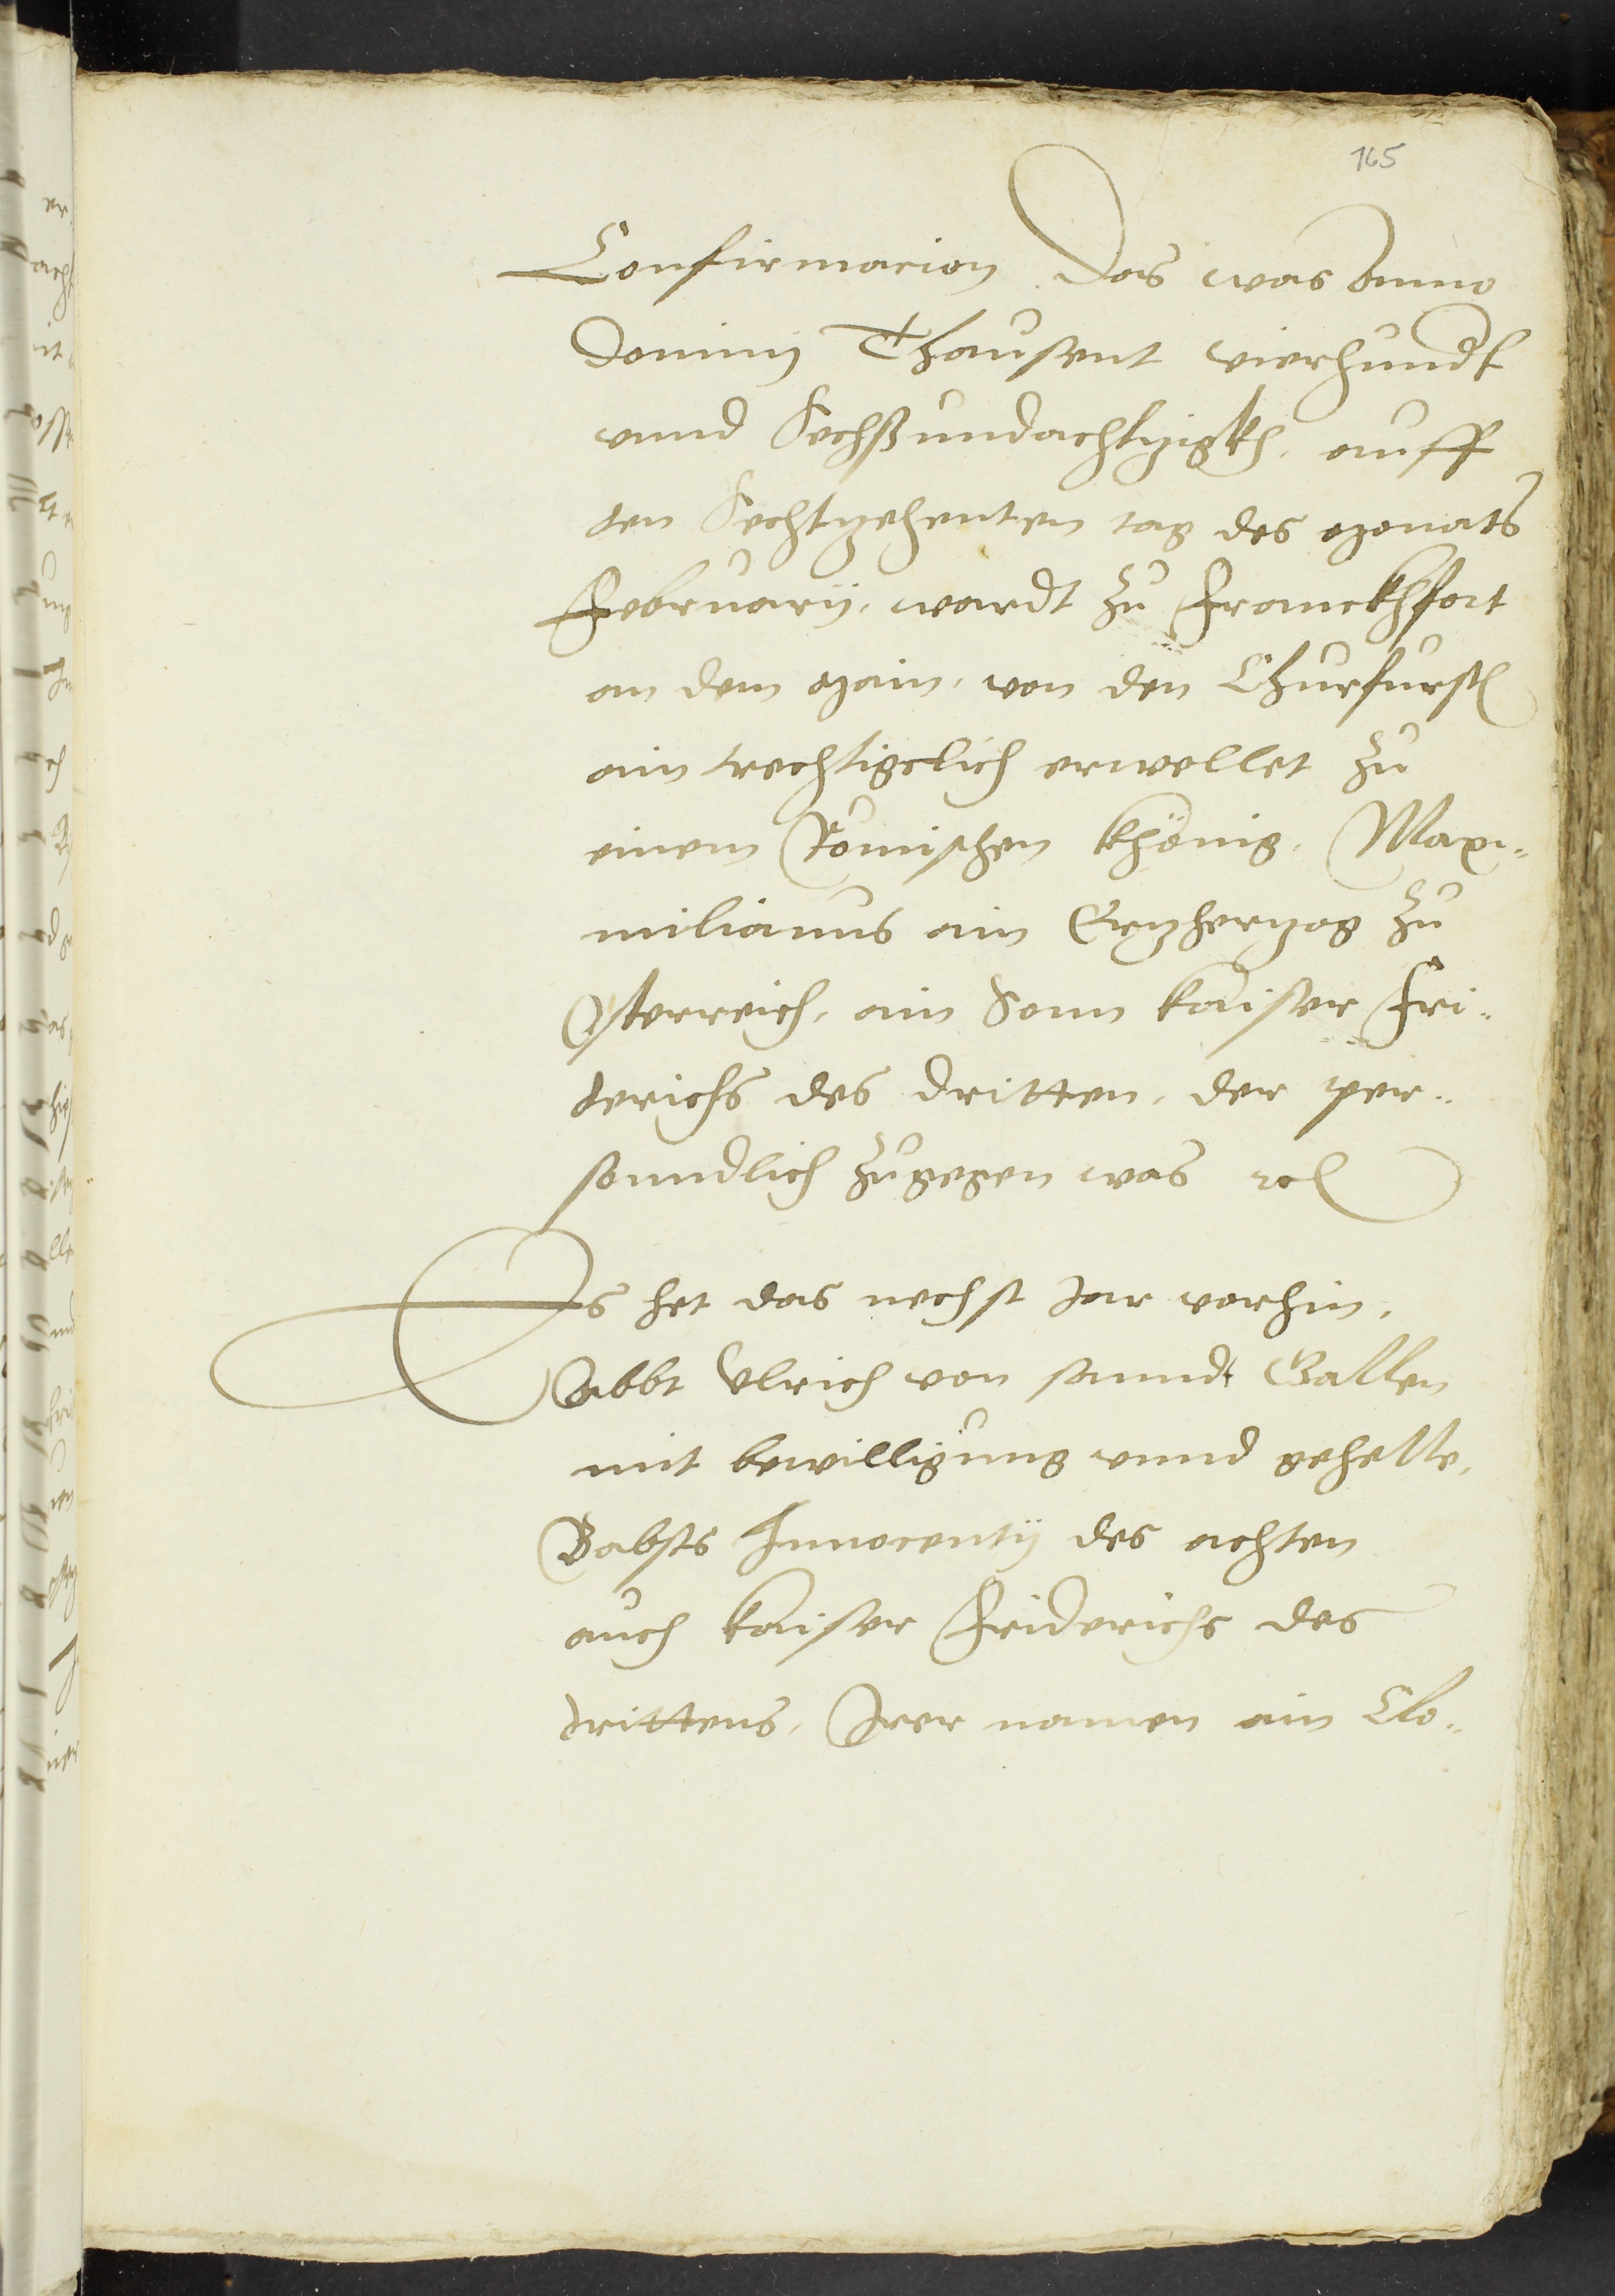 165
Confirmacion. Das was Anno
Dominj Thausent vierhundt
vnnd Sechßundachtzigkh, auff
den Sechtzehenten tag des monats
February, wardt zu Franckhfort
an dem main, von den Churfurst
ain trechtigelich erwellet zu
einem Römischen Khönig, Maxi-
milianus ain Ertzhertzog zu
Österreich, ain Sonn kaiser Fri-
derichs des dritten, der per-
sonndlich zugegen was
Es het das nechst Jar vorhin,
Abbt Vlrich von sannd Gallen
mit bewilligung vnnd gehelle,
Babsts Innocentij des achten
auch kaiser Friderichs des
drittens, Irer namen ain Clo-